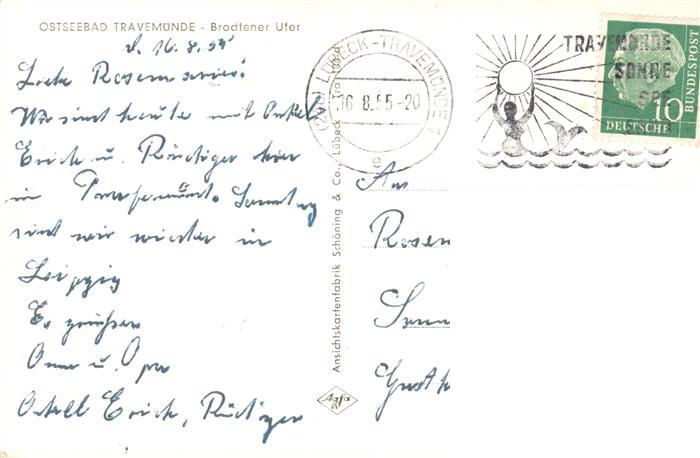 OSTSEEBAD TRAVEMÜNDE - Brodtener Ufer
d. 16.8.55
Liebe Rosemarie!
Wir sind heute mit Onkel
Erich u. Rüdiger hier
in Travemünde. Sonntag
sind wir wieder in
Leipzig
Es grüßen
Oma u. Opa
Onkel Erich, Rüdiger
Ansichtskartenfabrik Schöning & Co., Lübeck
Agfa
LÜBECK-TRAVEMÜNDE 1
16 8.55-20
TRAVEMÜNDE
SONNE
SEE
10
DEUTSCHE
BUNDESPOST
An
Rosem